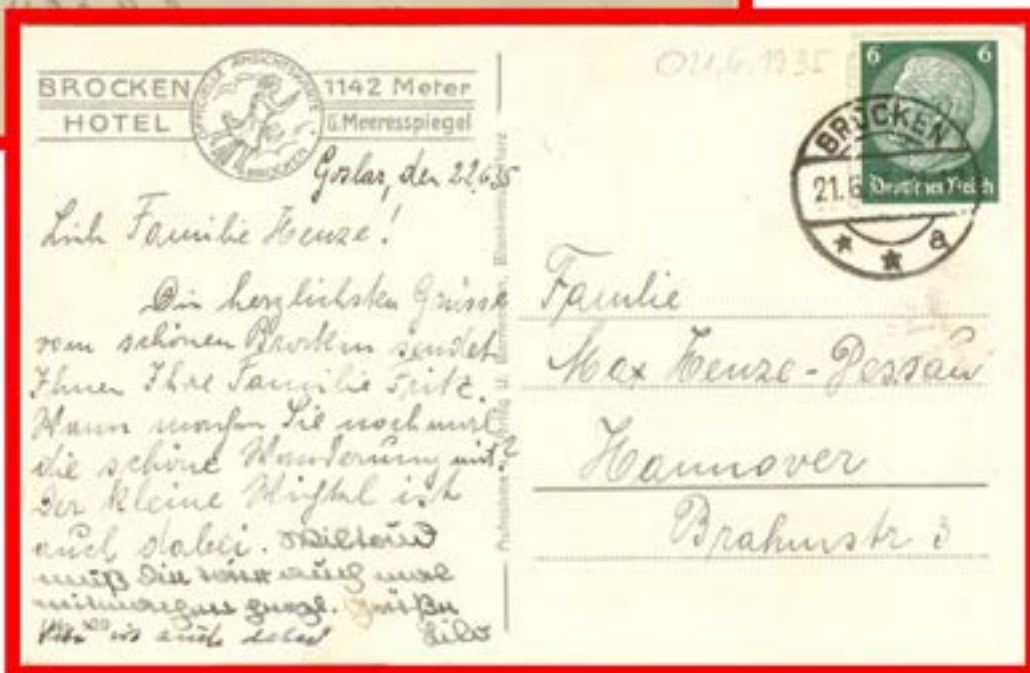 BROCKEN
HOTEL
OFFICIELLE ANSICHTSKARTE
BROCKEN
1142 Meter
ü. Meeresspiegel
Goslar, den 22.6.35
Familie Henze!
Die herzlichsten Grüsse
vom schönen Brocken sendet
Ihnen Ihre Familie Fritz.
Wann machen Sie noch mal
die schöne Wanderung mit?
Der kleine ist
auch dabei.
muß auch mal
Grüße
ist auch dabei
21.6.1935
6 6
Deutsches Reich
BROCKEN
21.6
* * a
Familie
Max Henze-Dessau
Hannover
Brahmstr 3